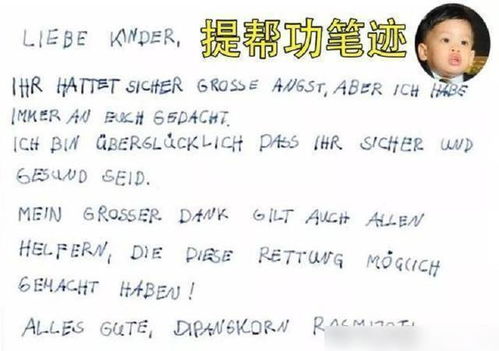 LIEBE KINDER,
提帮功笔迹
IHR HATTET SICHER GROSSE ANGST, ABER ICH HABE
IMMER AN EUCH GEDACHT.
ICH BIN ÜBERGLÜCKLICH DASS IHR SICHER UND
GESUND SEID.
MEIN GROSSER DANK GILT AUCH ALLEN
HELFERN, DIE DIESE RETTUNG MÖGLICH
GEMACHT HABEN!
ALLES GUTE, DIPANGKORN